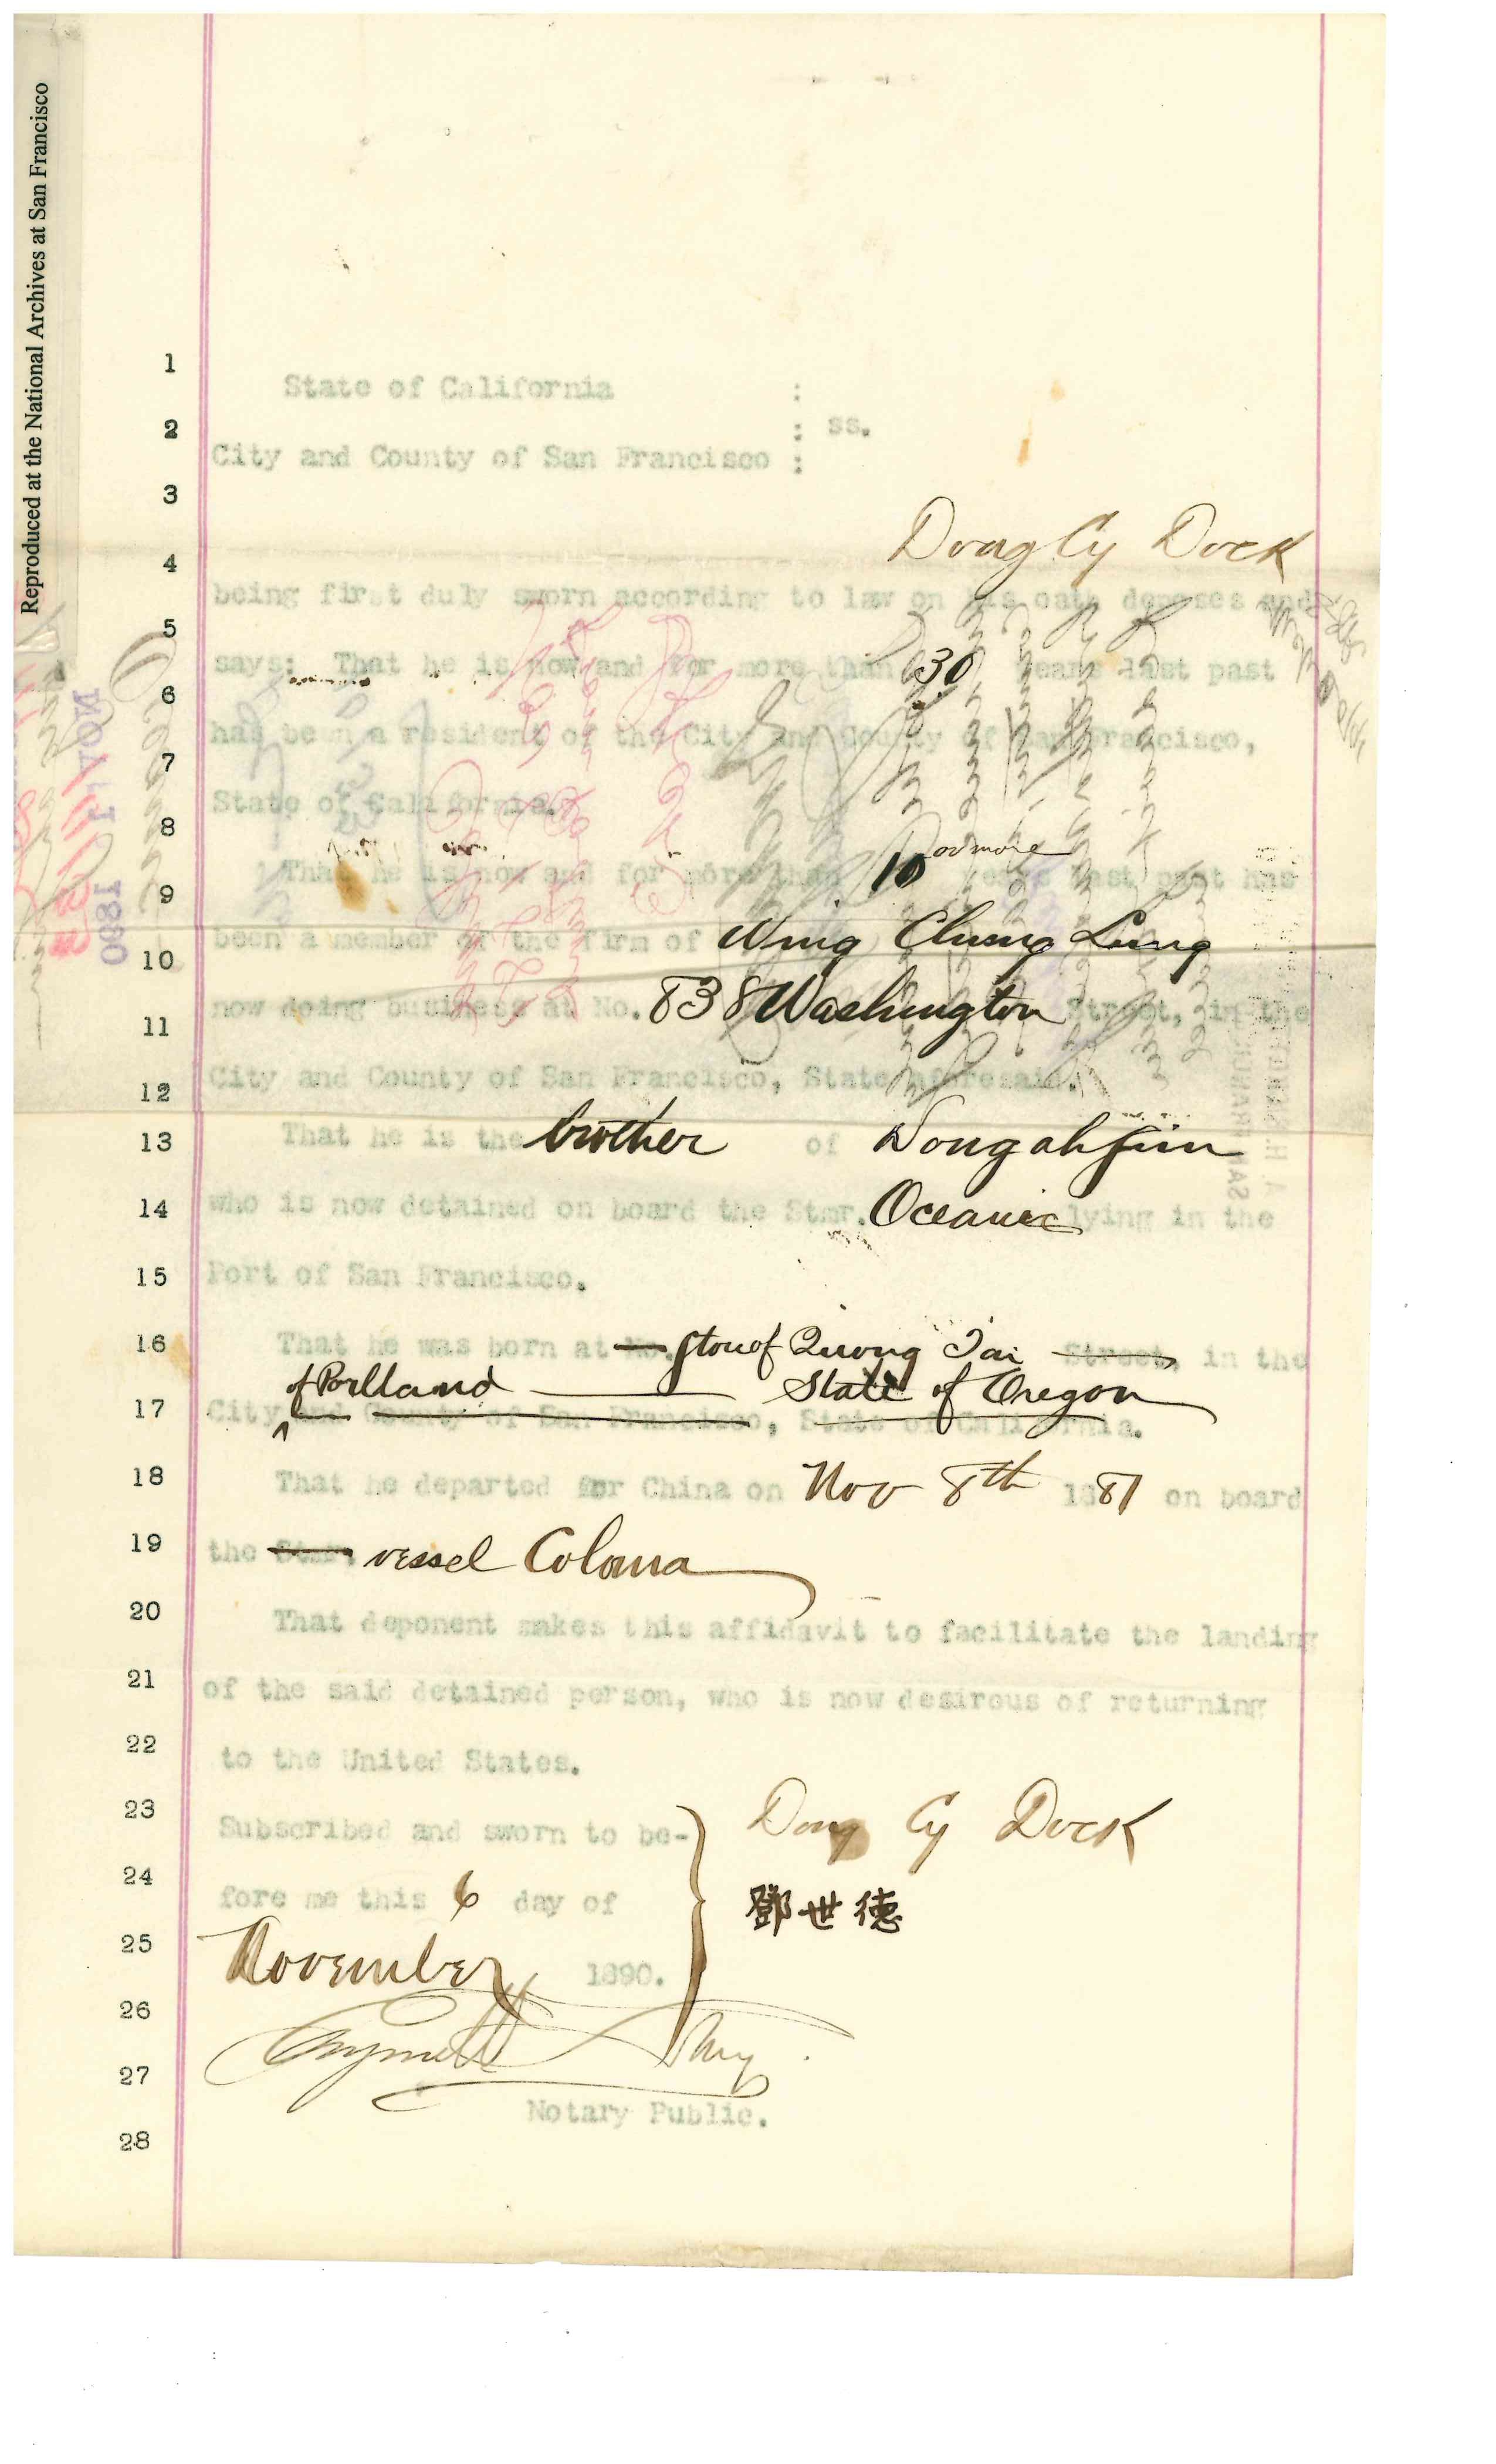 Reproduced at the National Archives at San Francisco
1
State of California :
2 : ss.
City and County of San Francisco :
3
Dong Cy Dock
4
being first duly sworn according to law on his oath deposes and
5
says: That he is now and for more than 30 years last past
6
has been a resident of the City and County of San Francisco,
7
State of California.
8
or more
That he is now and for more than 10 years last past has
9
been a member of the firm of Wing Chung Lung
10
now doing business at No. 838 Washington Street, in the
11
City and County of San Francisco, State aforesaid.
12
13 That he is the brother of Dong ah
14 who is now detained on board the Stmr. Oceanic lying in the
15 Port of San Francisco.
16 That he was born at No. store of Quong Tai Street, in the
of Portland State of Oregon
17 City and County of San Francisco, State of California.
18 That he departed for China on Nov 8th 1881 on board
19 the Stmr. vessel Coloma
20 That deponent makes this affidavit to facilitate the landing
21 of the said detained person, who is now desirous of returning
22 to the United States.
23 Subscribed and sworn to be- Dong Cy Dock
24 fore me this 6 day of 鄧世德
25 November 1890.
26
27
Notary Public.
28
NOV 11 1890